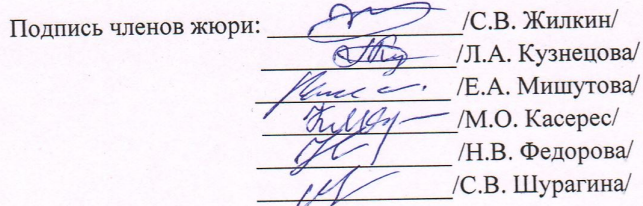 Подпись членов жюри: /С.В. Жилкин/
/Л.А. Кузнецова/
/Е.А. Мишутова/
/М.О. Касерес/
/Н.В. Федорова/
/С.В. Шурагина/